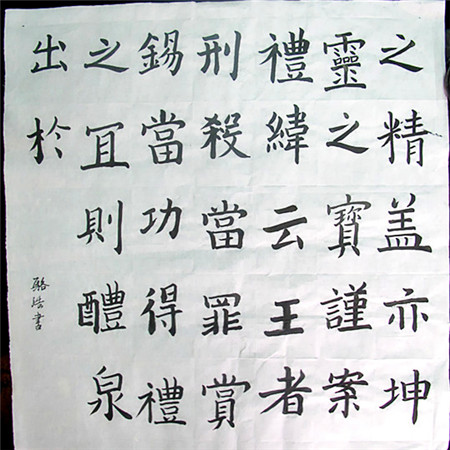 之精盖亦坤
靈之寶謹案
禮緯云王者
刑殺當罪賞
錫當功得禮
之冝則醴泉
出於
書